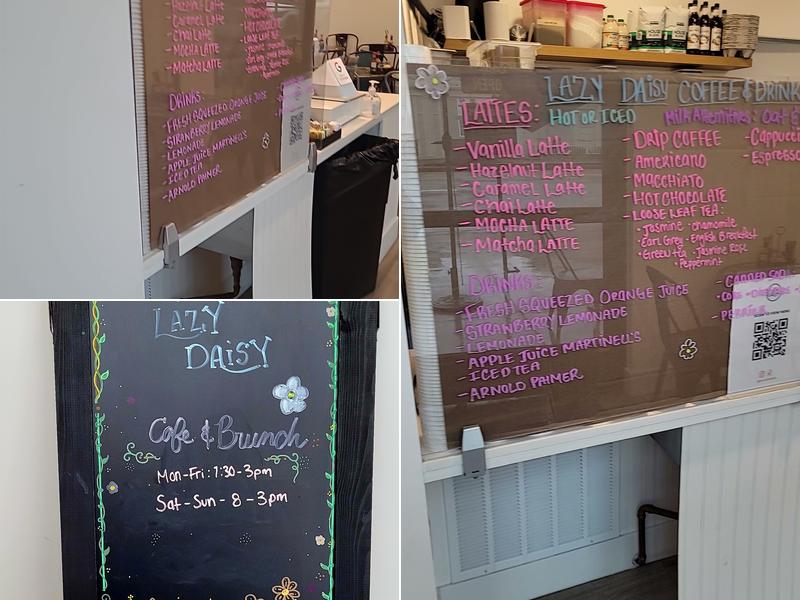 Hazelnut Latte
Caramel Latte
Chai Latte
MOCHA LATTE
Matcha LATTE
DRINKS:
- FRESH SQUEEZED ORANGE JUICE
- STRAWBERRY LEMONADE
- LEMONADE
- APPLE JUICE MARTINELL'S
- ICED TEA
- ARNOLD PALMER
LAZY
DAISY
Cafe & Brunch
Mon-Fri: 7:30-3pm
Sat-Sun - 8-3pm
LAZY DAISY COFFEE & DRINK
LATTES: HOT OR ICED
Milk Alternatives: Oat &
- Vanilla Latte
- Hazelnut Latte
- Caramel Latte
- Chai Latte
- MOCHA LATTE
- Matcha LATTE
- DRIP COFFEE
- AMERICANO
- MACCHIATO
- HOT CHOCOLATE
- LOOSE LEAF TEA:
• Jasmine • chamomile
• Earl Grey • English Breakfast
• Green tea • Jasmine Rose
• Peppermint
- Cappucci
- Espresso
DRINKS:
- FRESH SQUEEZED ORANGE JUICE
- STRAWBERRY LEMONADE
- LEMONADE
- APPLE JUICE MARTINELL'S
- ICED TEA
- ARNOLD PALMER
- CANNED
- PERRIER